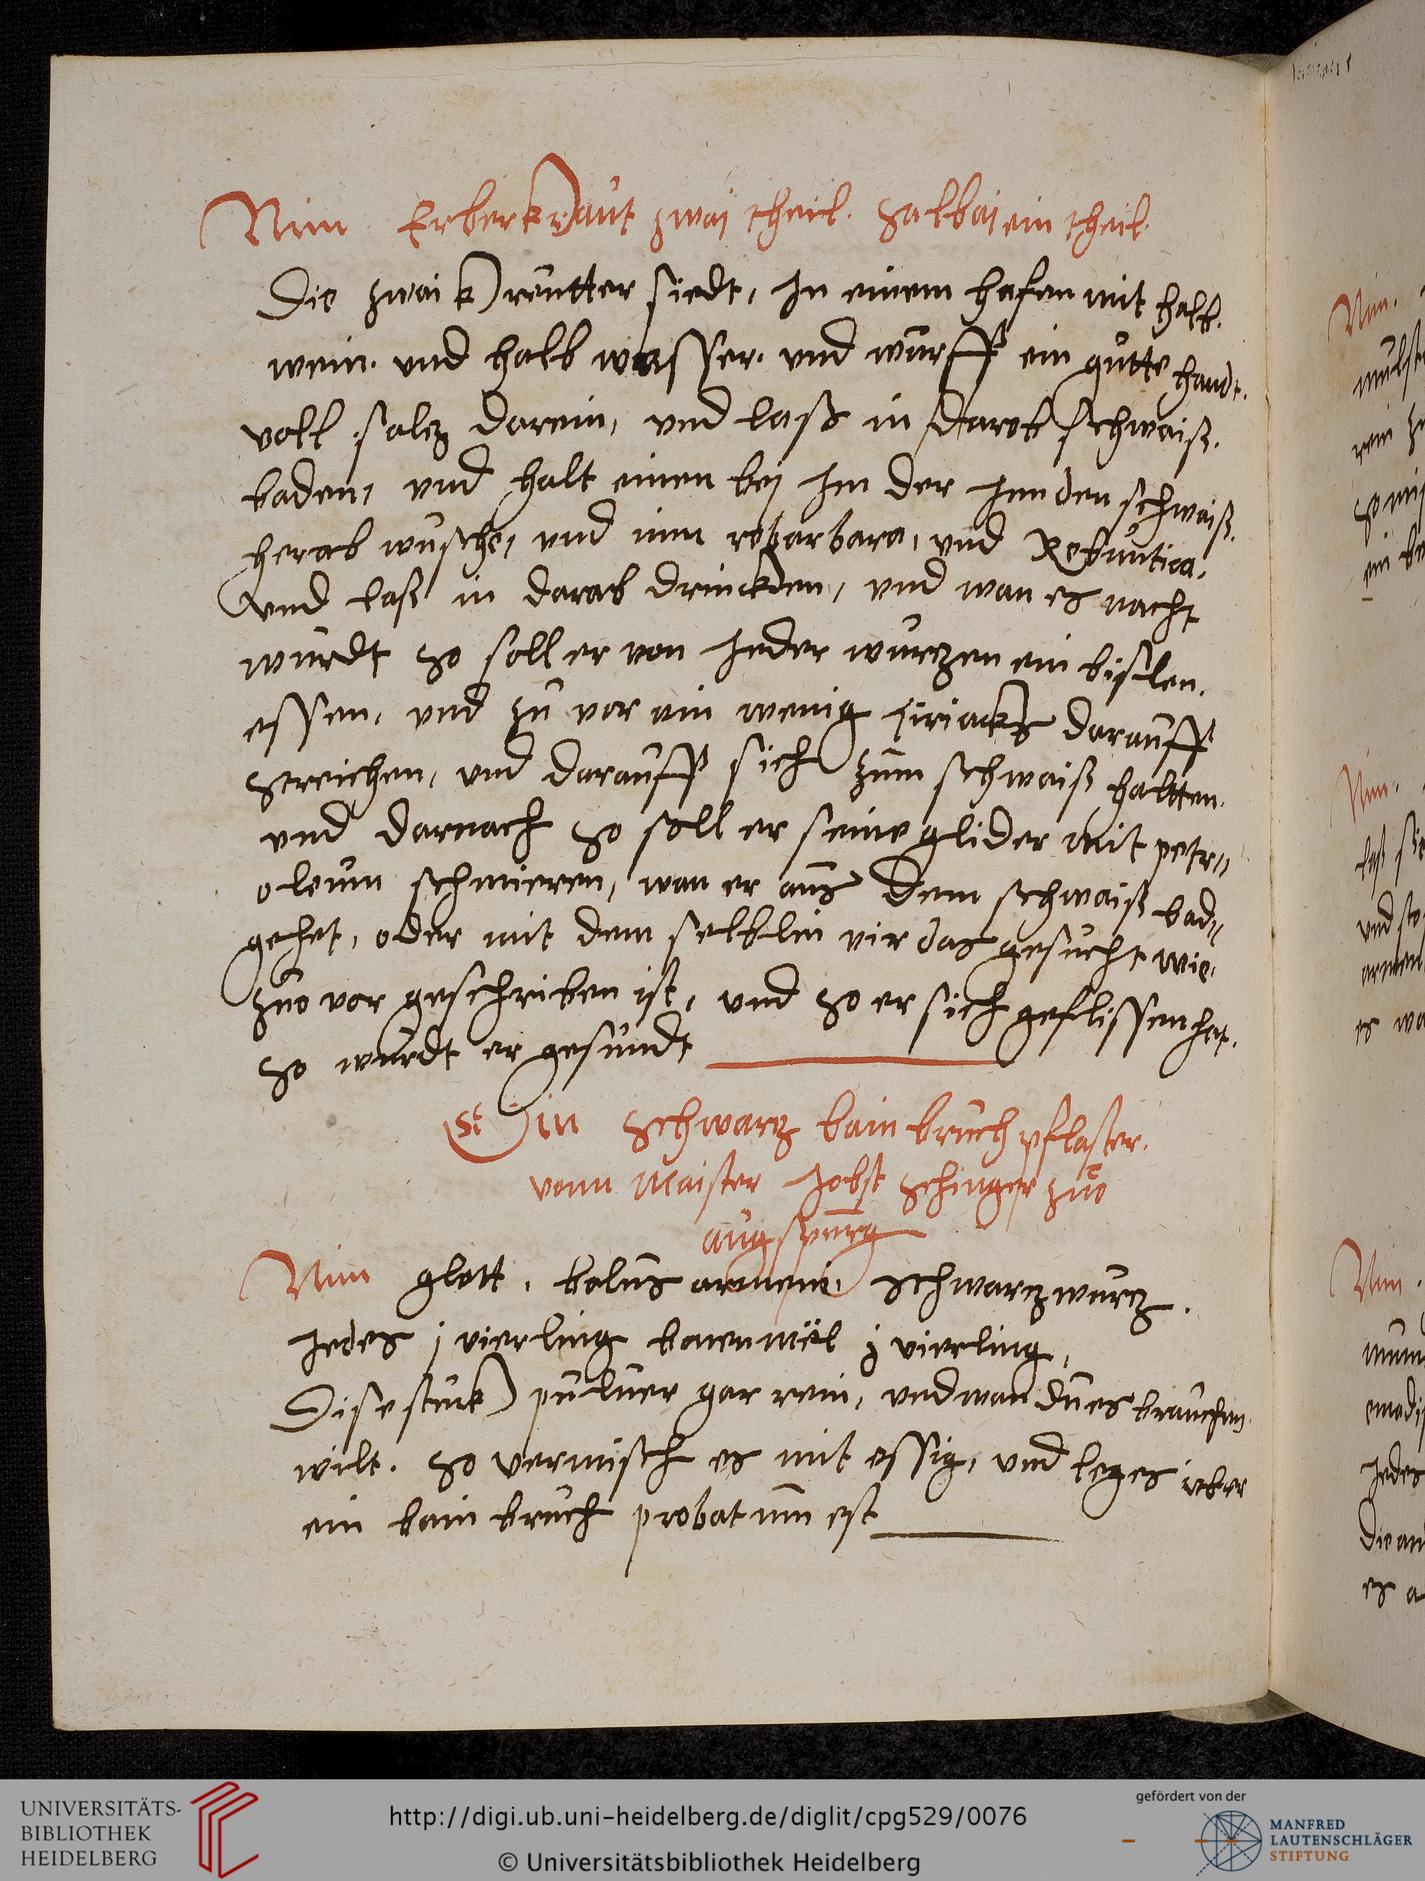 Nim Erberkraut zwai theil. salbai ein theil.
Die zwai kreutter siedt, In einem hafen mit halb.
wein. und halb wasser. und wurff ein gutte handt.
voll saltz darein, und laß in darob schwaiß.
baden, und halt einen bej Im der Im den schwaiß.
herab wusche, und nim rebarbara, und
und laß in darab drinckhen, und wan es nacht
wurdt so soll er von Jeder wurzen ein bislen.
essen, und zu vor ein wenig darauff
streichen, und darauff sich zum schwaiß haltten.
und darnach so soll er seine glider mit petr,,
oleum schmieren, wan er aus dem schwaiß bad,,
gehet, oder mit dem selblin vir das gesucht wie.
zuo vor geschriben ist, und so er sich geflissen hat.
so wurdt er gesundt
Ein schwartz bain bruch pflaster.
vonn Maister Jobst schinger zuo
augspurg
Nim glett, bolus armeni. schwartzwurtz.
Jedes j vierling bonenmel j vierling,
Dise stuck puluer gar rein, und wan du es brauchen
wilt. so vermisch es mit essig, und leges jber
ein bain bruch probatum est
UNIVERSITÄTS-
BIBLIOTHEK
HEIDELBERG
http://digi.ub.uni-heidelberg.de/diglit/cpg529/0076
© Universitätsbibliothek Heidelberg
gefördert von der
MANFRED
LAUTENSCHLÄGER
STIFTUNG